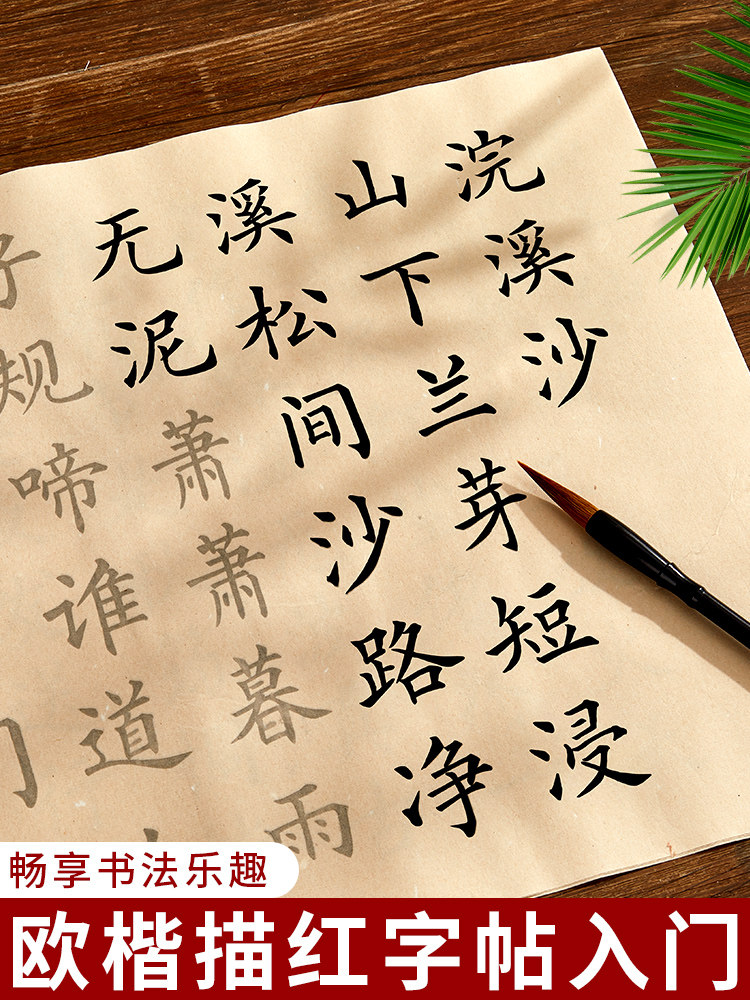 浣溪沙
山下兰芽短浸
溪松间沙路净
无泥萧萧暮雨
子规啼谁道
畅享书法乐趣
欧楷描红字帖入门